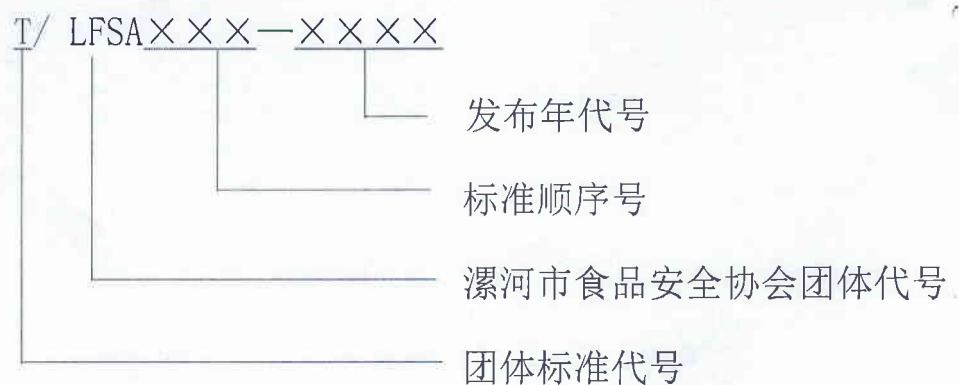 T/ LFSA×××—××××
发布年代号
标准顺序号
漯河市食品安全协会团体代号
团体标准代号